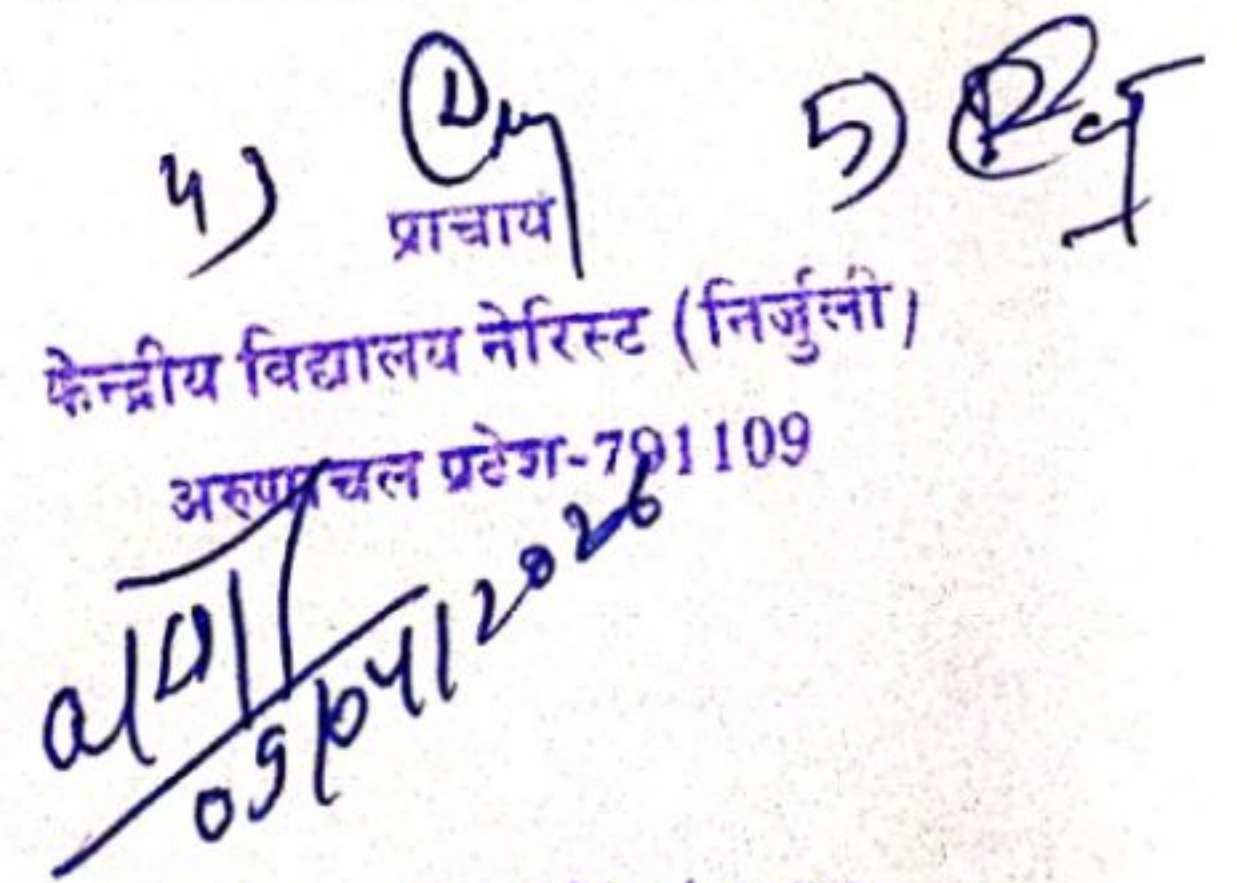 4) 5)
प्राचार्य
केन्द्रीय विद्यालय नेरिस्ट (निर्जुली)
अरुणाचल प्रदेश-791109
09/04/2026